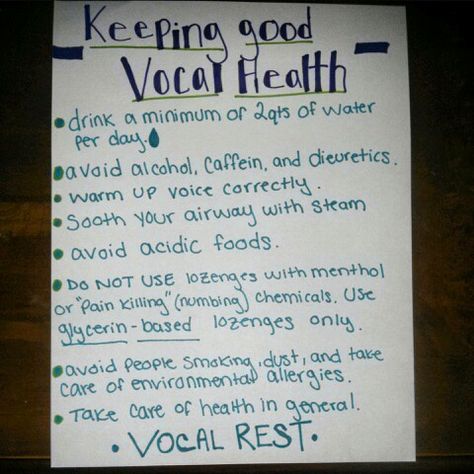 Keeping good
Vocal Health
• drink a minimum of 2qts of water
per day.
• avoid alcohol, caffein, and dieuretics.
• warm up voice correctly.
• Sooth your airway with steam
• avoid acidic foods.
• DO NOT USE lozenges with menthol
or "pain killing" (numbing) chemicals. Use
glycerin-based lozenges only.
• avoid people smoking, dust, and take
care of environmental allergies.
• Take care of health in general.
• VOCAL REST •